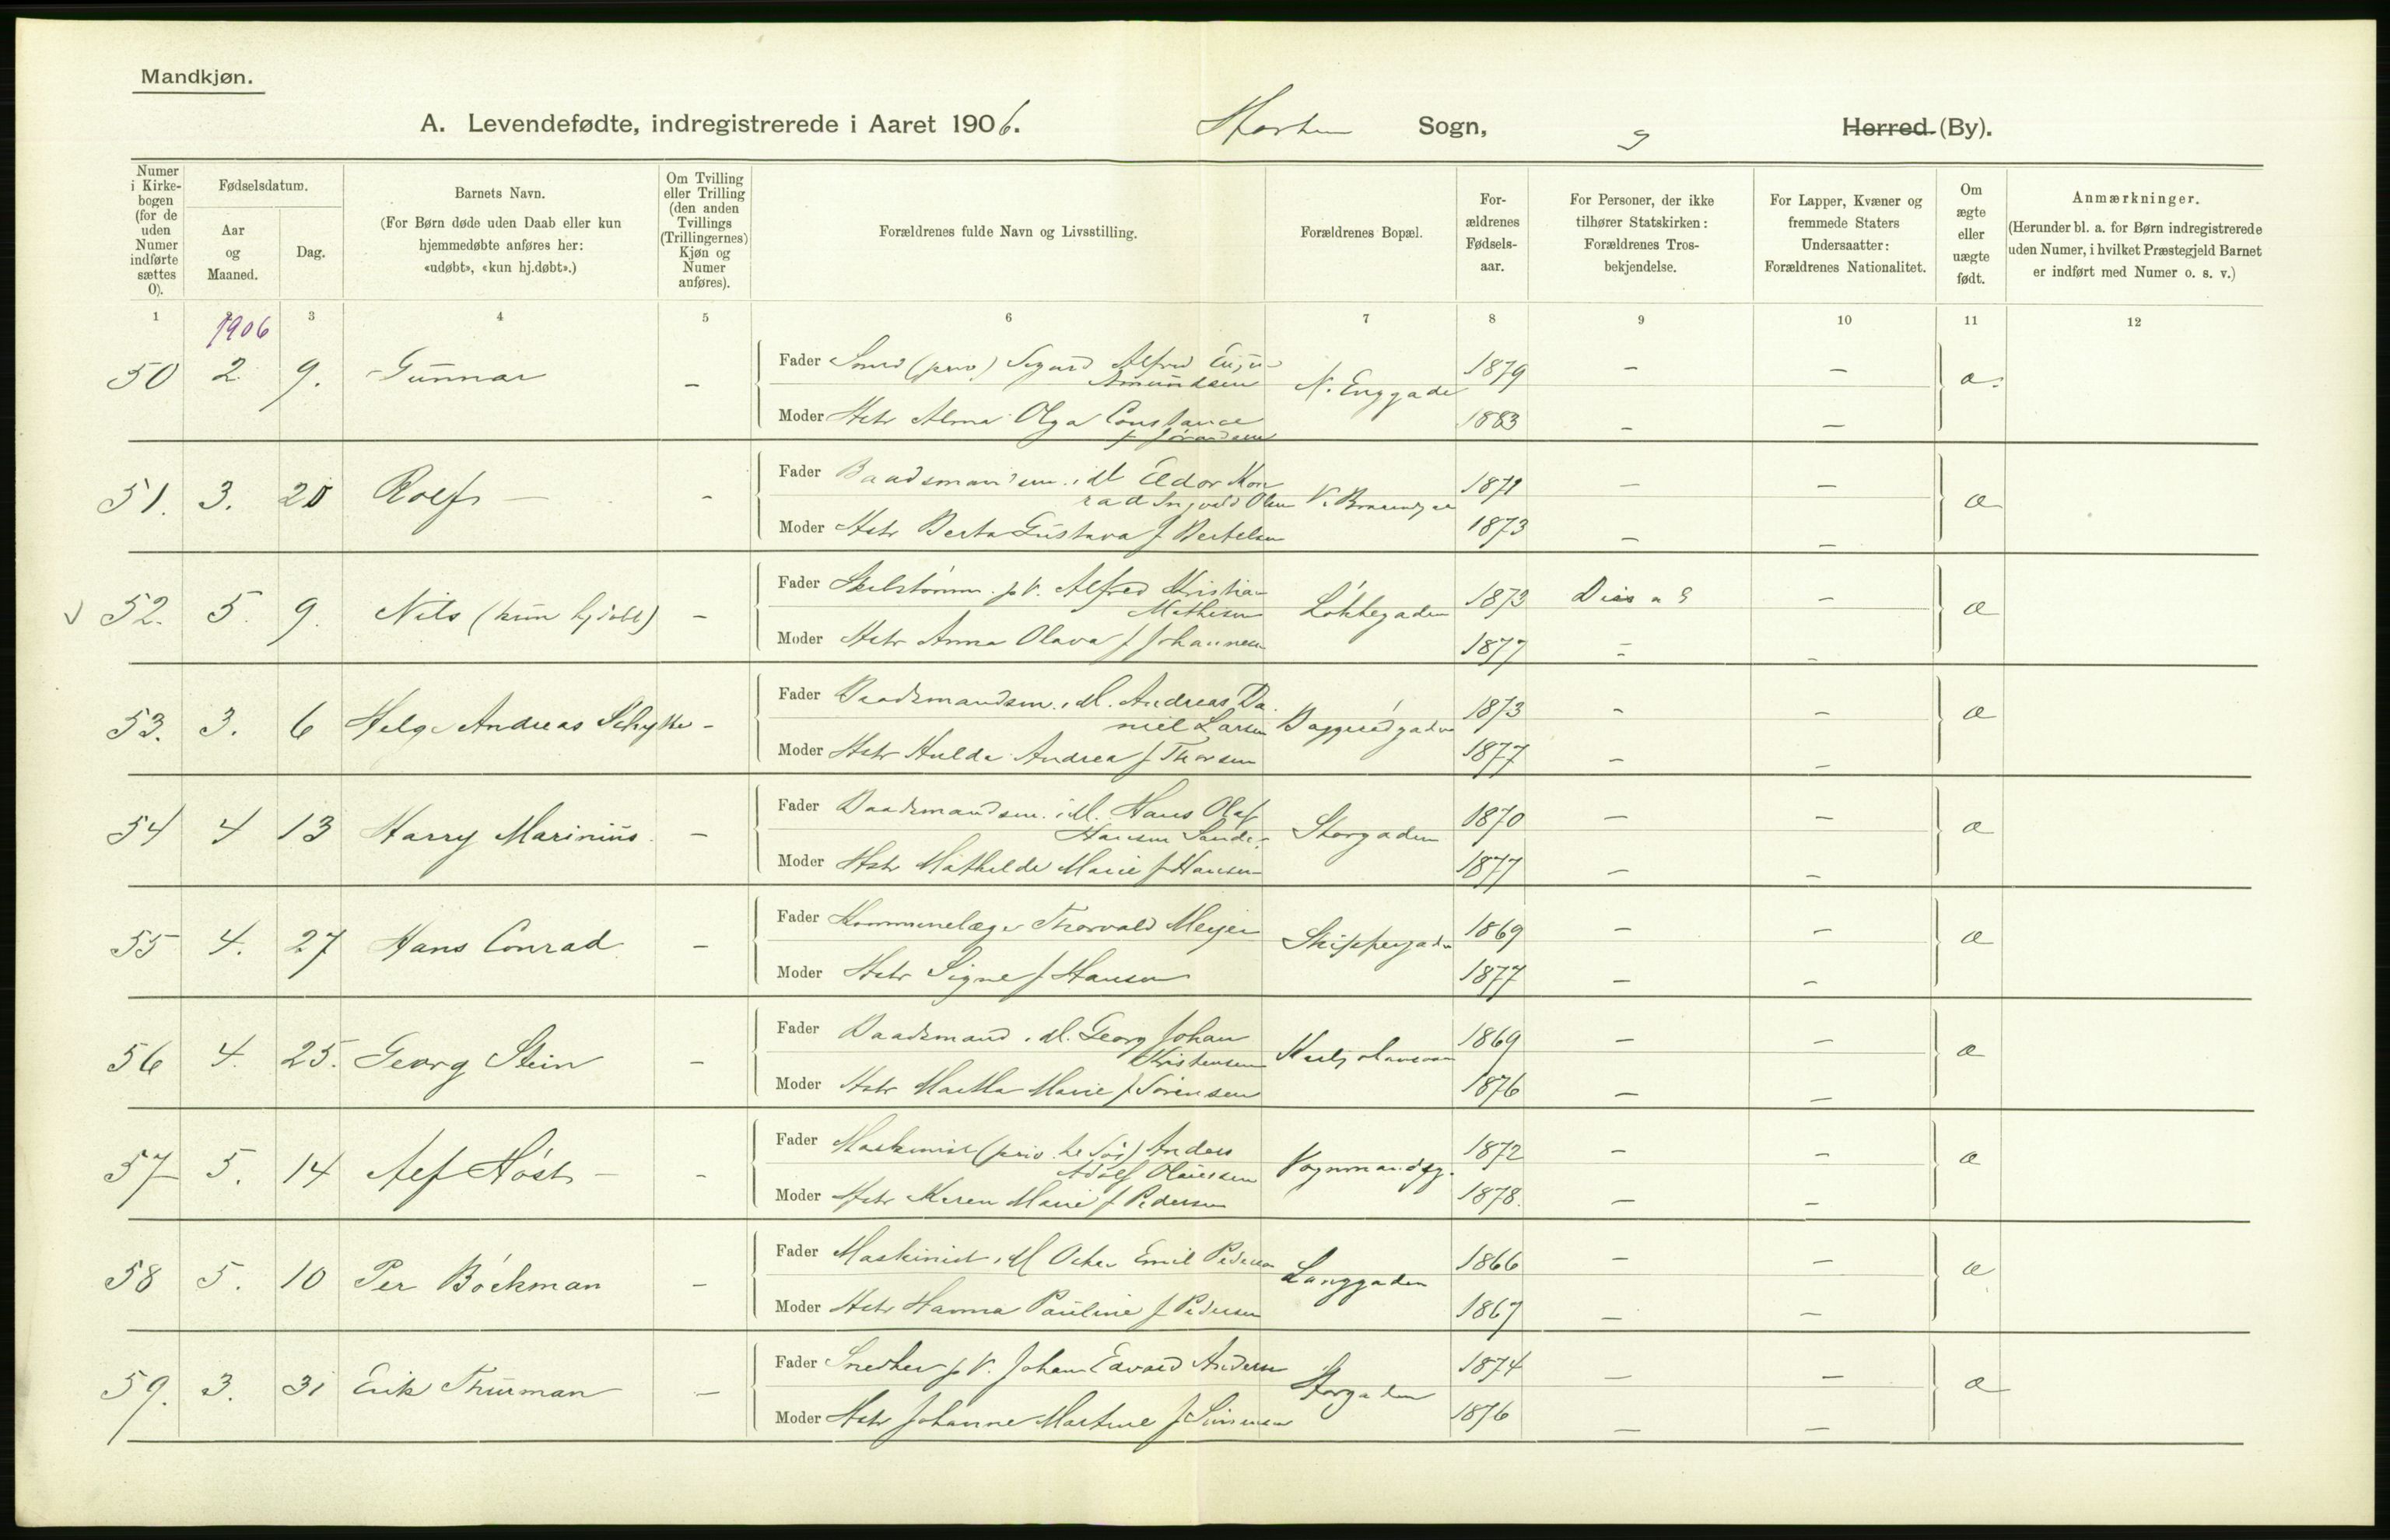 Mandkjøn.
A. Levendefødte, indregistrerede i Aaret 1906. Horten Sogn, Herred (By).
Numer i Kirkebogen (for de uden Numer indførte sættes O).
Fødselsdatum.
Aar og Maaned.
Dag.
Barnets Navn.
(For Børn døde uden Daab eller kun hjemmedøbte anføres her: «udøbt», «kun hj.døbt».)
Om Tvilling eller Trilling (den anden Tvillings (Trillingernes) Kjøn og Numer anføres).
Forældrenes fulde Navn og Livsstilling.
Forældrenes Bopæl.
For-ældrenes Fødsels-aar.
For Personer, der ikke tilhører Statskirken: Forældrenes Tros-bekjendelse.
For Lapper, Kvæner og fremmede Staters Undersaatter: Forældrenes Nationalitet.
Om ægte eller uægte født.
Anmærkninger.
(Herunder bl. a. for Børn indregistrerede uden Numer, i hvilket Præstegjeld Barnet er indført med Numer o. s. v.)
1 2 3 4 5 6 7 8 9 10 11 12
1906
50 2 9. Gunnar - Fader Smed (priv) Sigurd Alfred
Amundsen N. Enggade 1879 - - æ.
Moder Hstr Alma Olga Constance 1883 - -
51. 3. 20 Rolf - - Fader Baadsmandsm. i M Eldor Kon
rad Ingvald Olsen 1871 - - æ
Moder Hstr Berta Gustava f Bertelsen 1873 - -
52. 5. 9. Nils (kun hjdøbt) - Fader p V. Alfred Kristian
Mathisen Løkkegaden 1873 Diss - æ
Moder Hstr Anna Olava f Johannesen 1877 - -
53. 3. 6 Helge Andreas Schytte - Fader Baadsmandsm. i M. Andreas Da
niel Larsen 1873 - - æ
Moder Hstr Hulda Andrea f Thorsen 1877 - -
54 4 13 Harry Marinius - Fader Baadsmandsm. i M. Hans Olaf
Hansen Sande Storgaden 1870 - - æ
Moder Hstr Mathilde Marie f Hansen 1877 - -
55 4. 27 Hans Conrad - Fader Kommunelæge Thorvald Meyer Skippergaden 1869 - - æ
Moder Hstr Signe f Hansen 1877 - -
56 4. 25. Georg Stein - Fader Baadsmand i M. Georg Johan
Kristensen 1869 - - æ
Moder Hstr Martha Marie f Sørensen 1876 - -
57 5. 14 Alf Høst - - Fader Maskinist (priv. til Søs) Anders
Adolf Olaussen Vognmandsg. 1872 - - æ
Moder Hstr Karen Marie f Pedersen 1878. - -
58 5. 10 Per Bøckman - Fader Maskinist i M Oskar Emil Pedersen Langgaden 1866 - - æ
Moder Hstr Hanna Pauline f Pedersen 1867 - -
59. 3. 31 Erik Thurman - Fader Snedker p V. Johan Edvard Andersen Storgaden 1874 - - æ
Moder Hstr Johanne Martine f Simensen 1876 - -